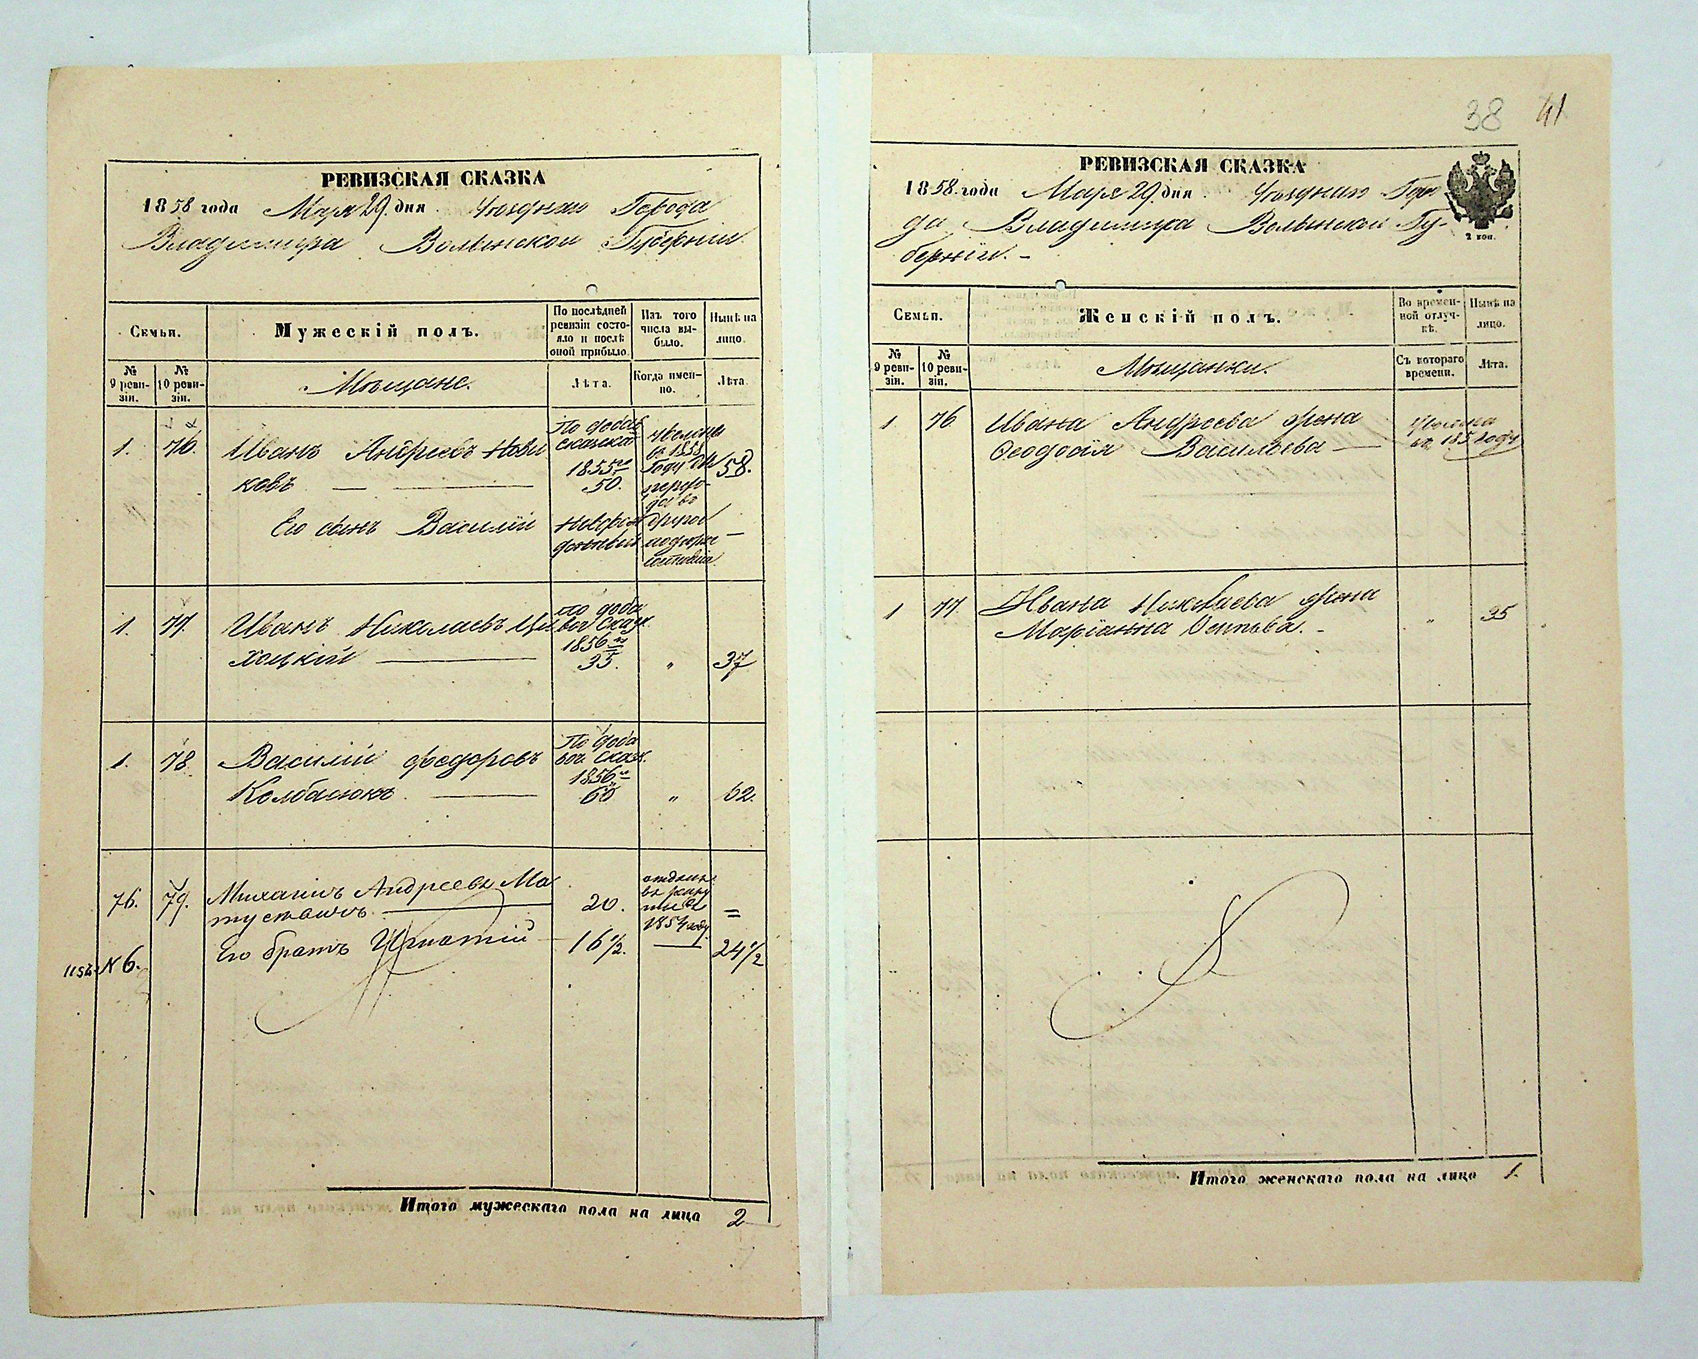 РЕВИЗСКАЯ СКАЗКА
1858 года Марта 29 дня Уѣзднаго Города
Владимира Волынской Губерніи
Семьи.
Мужескій полъ.
По послѣдней
ревизіи состо-
яло и послѣ
оной прибыло.
Изъ того
числа вы-
было.
Нынѣ на
лицо.
№
9 реви-
зіи.
№
10 реви-
зіи.
Мѣщане.
Лѣта.
Когда имен-
но.
Лѣта.
1. 76. Иванъ Андреевъ Нови
ковъ
1855
50.
58.
Его сынъ Василій
1. 77. Иванъ Николаевъ
хоцкій
По доба
воч. Сказк.
1856
35. " 37
1. 78. Василій Федоровъ
Колбасюкъ
По доба
воч. Сказк.
1856
60 " 62.
76. 79. Михаилъ Андреевъ Ма
тусевичъ
20. =
1854 году
N 6. Его братъ Игнатій 16 1/2. 24 1/2
Итого мужескаго пола на лицо 2
38 41
РЕВИЗСКАЯ СКАЗКА
1858 года Марта 29 дня Уѣзднаго Горо
да Владимира Волынской Гу-
берніи.-
2 коп.
Семьи.
Женскій полъ.
Во времен-
ной отлуч-
кѣ.
Нынѣ на
лицо.
№
9 реви-
зіи.
№
10 реви-
зіи.
Мѣщанки.
Съ котораго
времени.
Лѣта.
1 76 Ивана Андреева жена
Ѳеодосія Васильева
1 77. Ивана Николаева жена
Маріанна Осипова.- " 35
Итого женскаго пола на лицо 1.